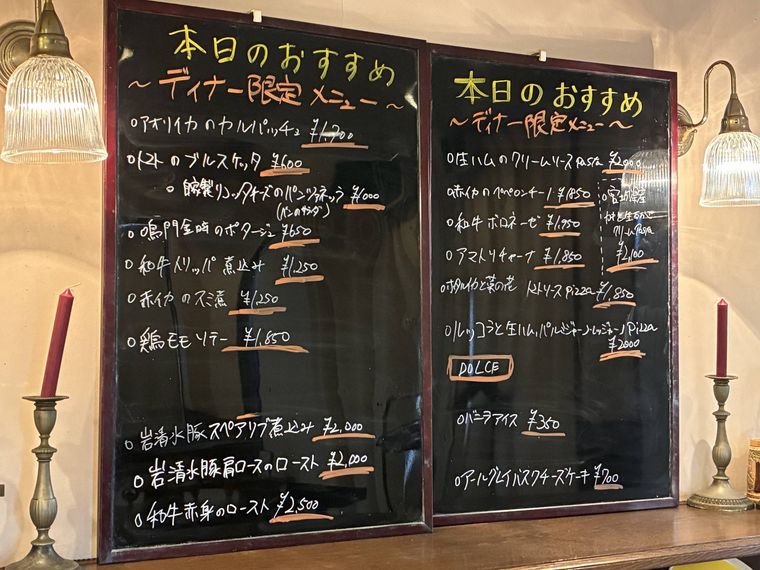 本日のおすすめ
～ディナー限定メニュー～
○アオリイカのカルパッチョ ¥1,700
○トマトのブルスケッタ ¥600
○自家製リコッタチーズのパンツァネッラ ¥1000
(パンのサラダ)
○鳴門金時のポタージュ ¥650
○和牛トリッパ煮込み ¥1,250
○赤イカのスミ煮 ¥1,250
○鶏モモソテー ¥1,850
○岩清水豚スペアリブ煮込み ¥2,000
○岩清水豚肩ロースのロースト ¥2,000
○和牛赤身のロースト ¥2,500
本日のおすすめ
～ディナー限定メニュー～
○生ハムのクリームソース Pasta ¥2000
○赤イカのペペロンチーノ ¥1,850
○和牛ボロネーゼ ¥1,950
○アマトリチャーナ ¥1,850
○宮城県産
クリーム Pasta
¥2,100
○ホタルイカと菜の花 トマトソース Pizza ¥1,850
○ルッコラと生ハム、パルミジャーノ・レッジャーノ Pizza
¥2000
DOLCE
○バニラアイス ¥350
○アールグレイバスクチーズケーキ ¥700